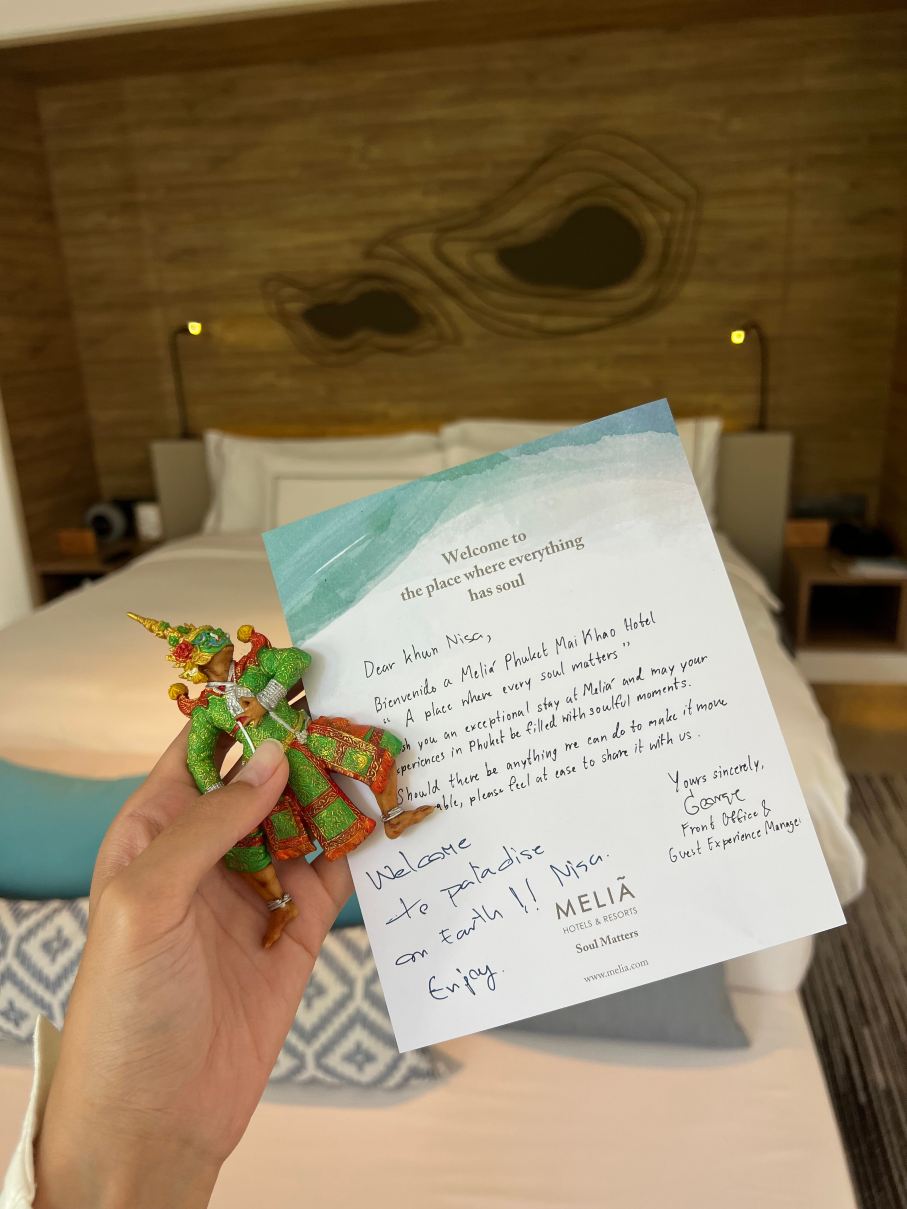 Welcome to
the place where everything
has soul
Dear Khun Nisa,
Bienvenido a Meliá Phuket Mai Khao Hotel
" A place where every soul matters "
sh you an exceptional stay at Meliá and may your
xperiences in Phuket be filled with soulful moments.
Should there be anything we can do to make it more
able, please feel at ease to share it with us.
Yours sincerely,
George
Front Office &
Guest Experience Manager
Welcome
to paladise
on Earth !! Nisa.
Enjoy.
MELIÃ
HOTELS & RESORTS
Soul Matters
www.melia.com